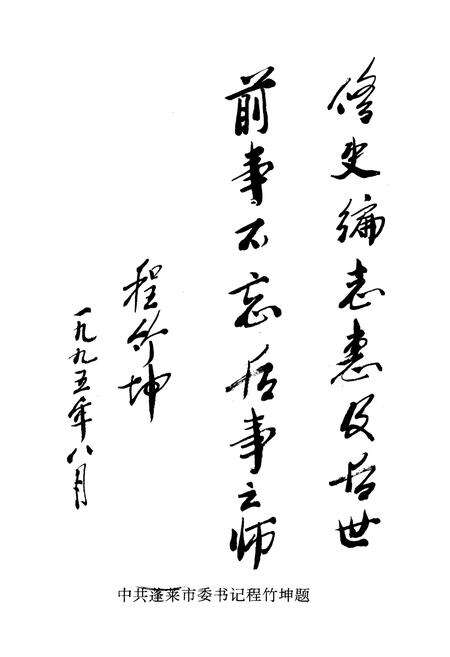 修史编志惠及后世
前事不忘后事之师
程竹坤
一九九五年八月
中共蓬莱市委书记程竹坤题